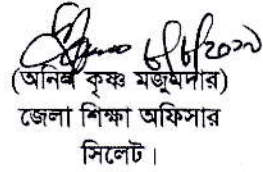 (অনিল কৃষ্ণ মজুমদার)
জেলা শিক্ষা অফিসার
সিলেট।